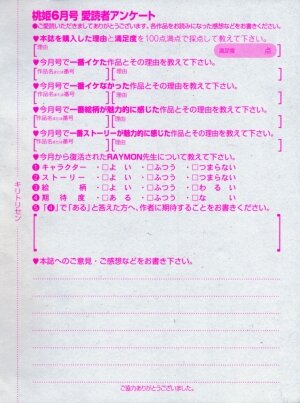 桃姫6月号 愛読者アンケート
●ご愛読いただきましてありがとうございます。各作品をお読みになった感想などをお書きください。
♥本誌を購入した理由と満足度を100点満点で採点して教えて下さい。
理由
満足度 点
♥今月号で一番イケた作品とその理由を教えて下さい。
作品名または番号 理由
♥今月号で一番イケなかった作品とその理由を教えて下さい。
作品名または番号 理由
♥今月号で一番絵柄が魅力的に感じた作品とその理由を教えて下さい。
作品名または番号 理由
♥今月号で一番ストーリーが魅力的に感じた作品とその理由を教えて下さい。
作品名または番号 理由
♥今月から復活されたRAYMON先生について教えて下さい。
❶キャラクター・□よい・□ふつう・□つまらない
❷ストーリー・□よい・□ふつう・□つまらない
❸絵柄・□よい・□ふつう・□わるい
❹期待度・□ある・□ない
❺「❹」で「ある」と答えた方へ、作者に期待することをお書きください。
♥本誌へのご意見・ご感想などをお書き下さい。
ご協力ありがとうございました。
キリトリセン